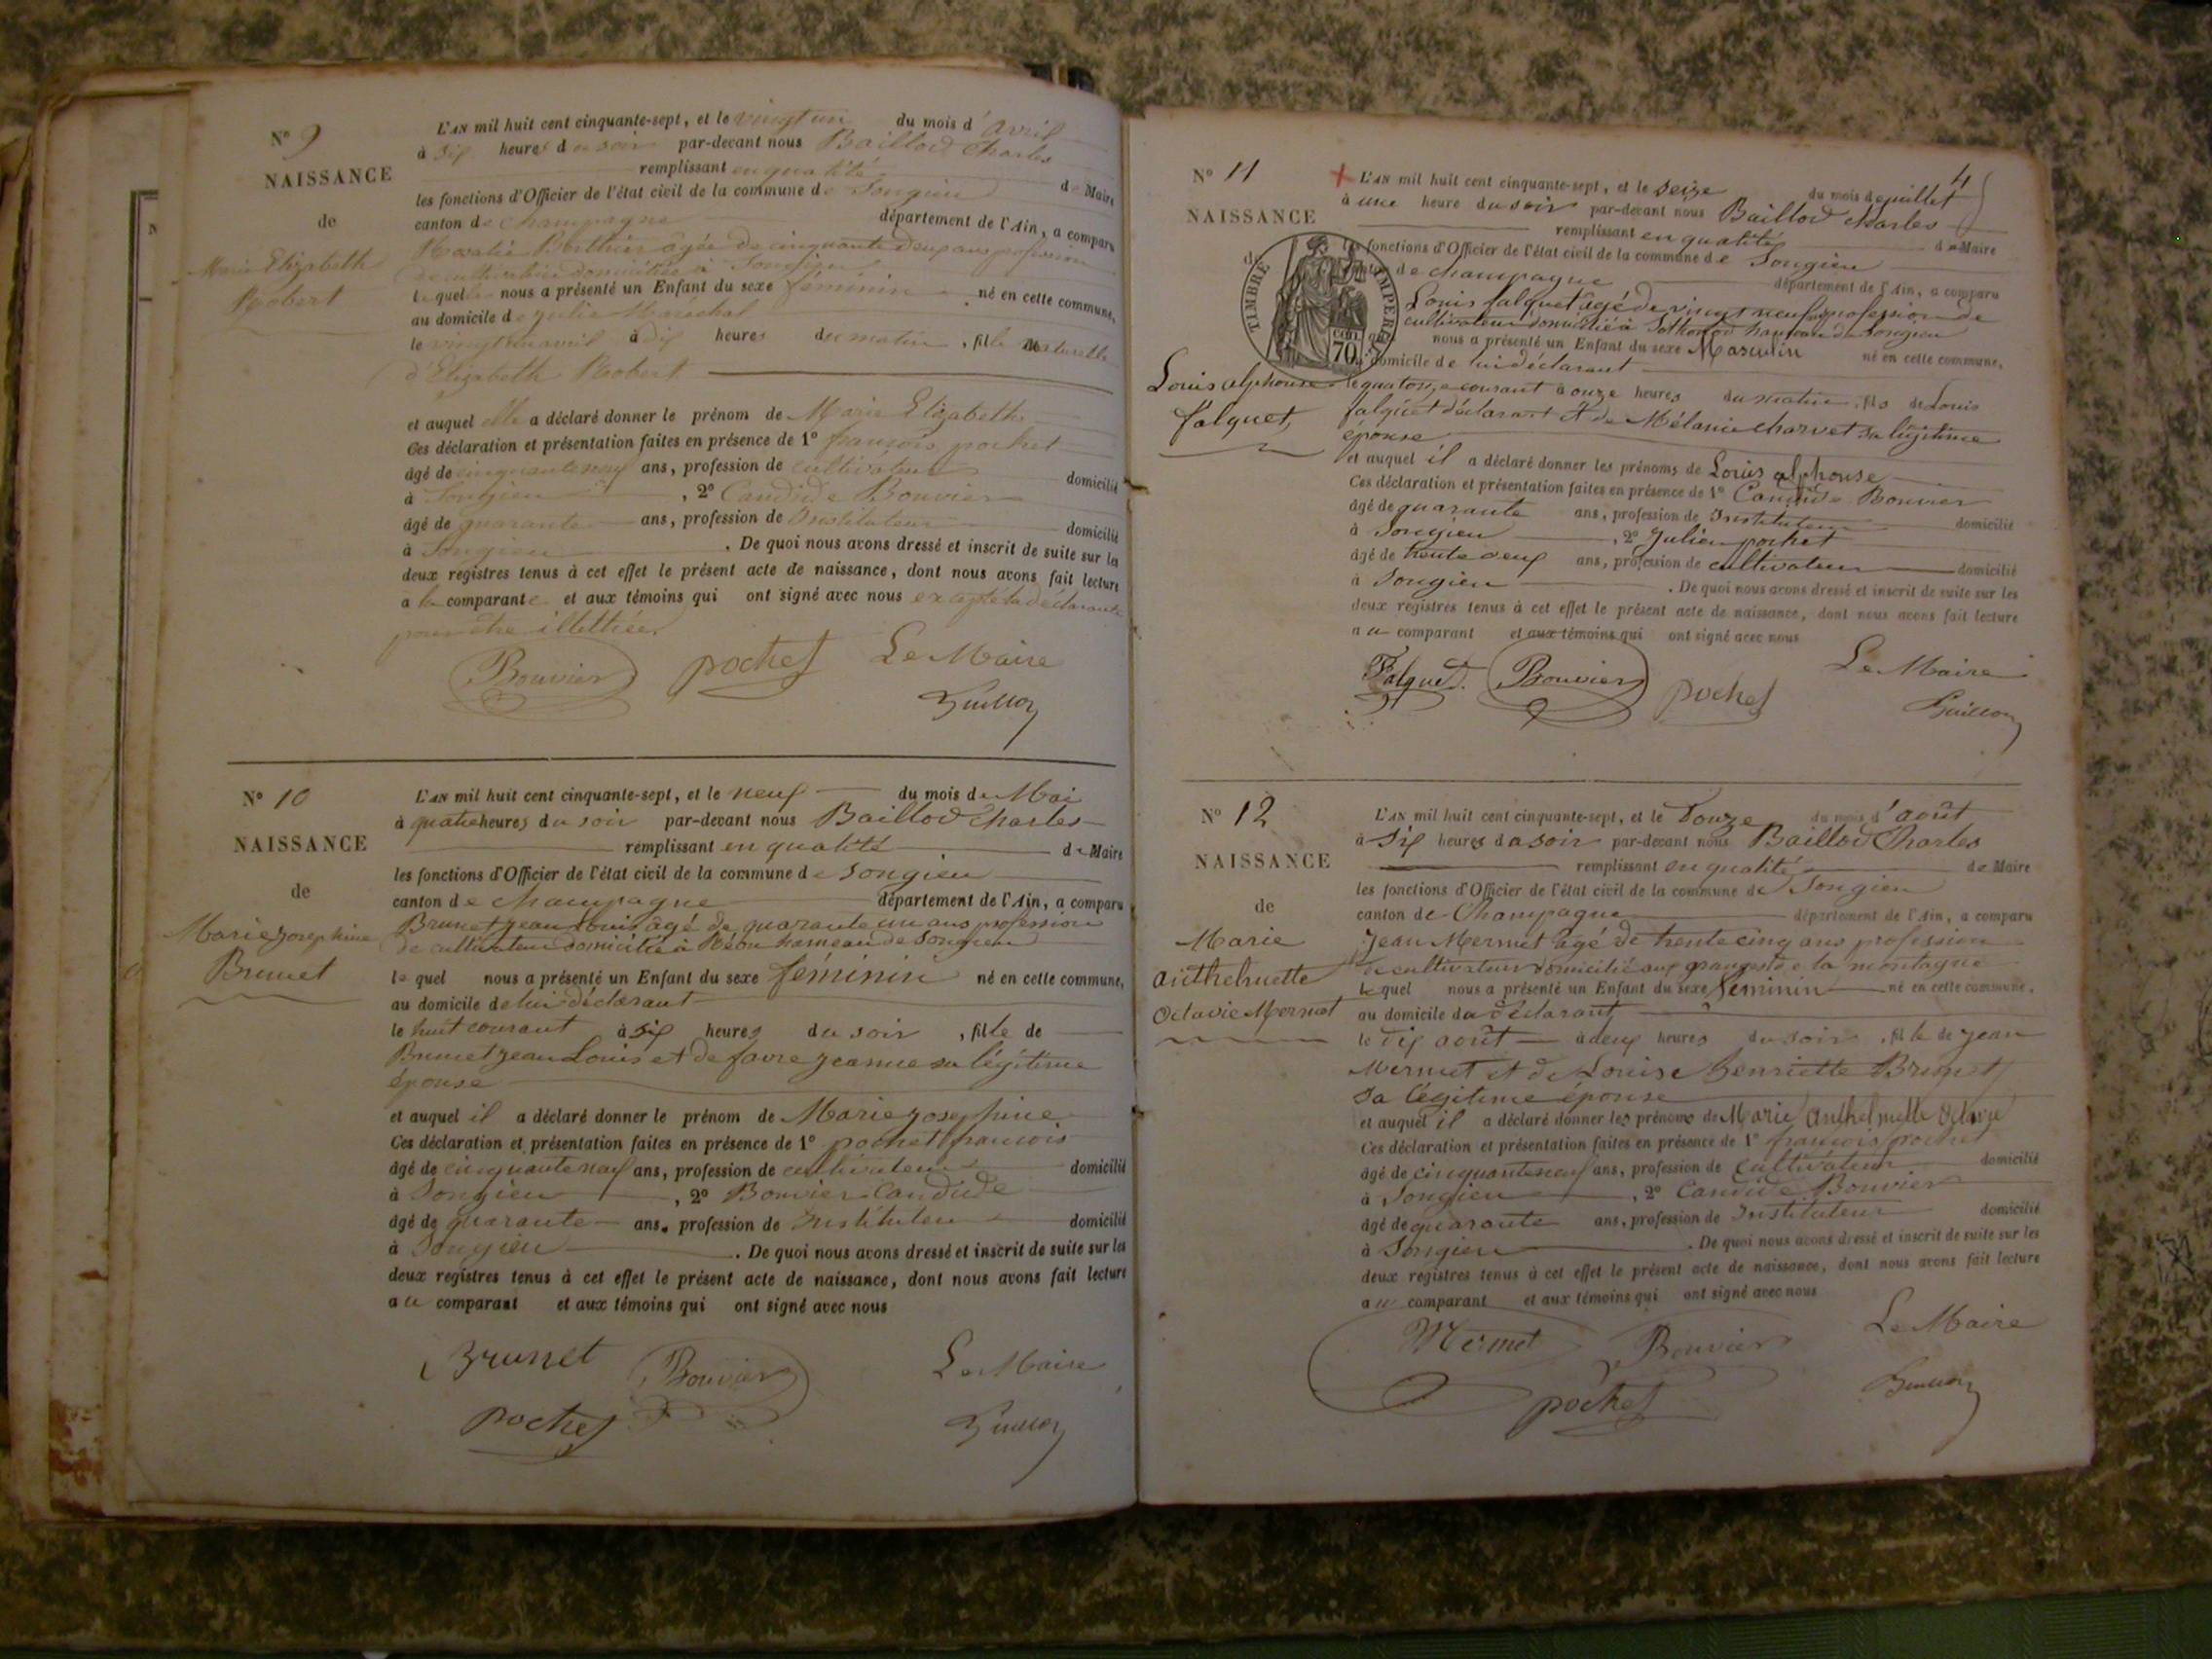 N° 9
NAISSANCE
de
Marie Elizabeth
Robert
L'AN mil huit cent cinquante-sept, et le vingt un du mois d'avril
à six heures du soir par-devant nous Baillod Charles
remplissant en qualité de Maire
les fonctions d'Officier de l'état civil de la commune de Songieu
canton de Champagne département de l'Ain, a comparu
Berthier âgée de cinquante deux ans profession
de cultivatrice domiciliée à Songieu
lequel nous a présenté un Enfant du sexe féminin né en cette commune,
au domicile de Julie Maréchal
le vingt un avril à dix heures du matin, fille naturelle
d'Elizabeth Robert
et auquel elle a déclaré donner le prénom de Marie Elizabeth
Ces déclaration et présentation faites en présence de 1° françois pochet
âgé de cinquante neuf ans, profession de cultivateur domicilié
à Songieu, 2° Candide Bouvier
âgé de quarante ans, profession de Instituteur domicilié
à Songieu. De quoi nous avons dressé et inscrit de suite sur les
deux registres tenus à cet effet le présent acte de naissance, dont nous avons fait lecture
a la comparante et aux témoins qui ont signé avec nous excepté la déclarante
pour être illettrée.
Bouvier pochet Le Maire
N° 10
NAISSANCE
de
Marie Josephine
Brunet
L'AN mil huit cent cinquante-sept, et le neuf du mois de Mai
à quatre heures du soir par-devant nous Baillod Charles
remplissant en qualité de Maire
les fonctions d'Officier de l'état civil de la commune de Songieu
canton de Champagne département de l'Ain, a comparu
Brunet Jean Louis âgé de quarante un ans profession
de cultivateur domicilié à Béon hameau de Songieu
lequel nous a présenté un Enfant du sexe féminin né en cette commune,
au domicile de lui déclarant
le huit courant à six heures du soir, fille de
Brunet Jean Louis et de favre Jeanne sa légitime
épouse
et auquel il a déclaré donner le prénom de Marie Josephine
Ces déclaration et présentation faites en présence de 1° pochet françois
âgé de cinquante neuf ans, profession de cultivateur domicilié
à Songieu, 2° Bouvier Candide
âgé de quarante ans, profession de Instituteur domicilié
à Songieu. De quoi nous avons dressé et inscrit de suite sur les
deux registres tenus à cet effet le présent acte de naissance, dont nous avons fait lecture
au comparant et aux témoins qui ont signé avec nous
Brunet Bouvier Le Maire
pochet
4
N° 11
NAISSANCE
de
TIMBRE IMPERIAL
70
Louis alphonse
falquet
L'AN mil huit cent cinquante-sept, et le seize du mois de juillet
à une heure du soir par-devant nous Baillod Charles
remplissant en qualité de Maire
les fonctions d'Officier de l'état civil de la commune de Songieu
canton de Champagne département de l'Ain, a comparu
Louis falquet âgé de vingt neuf ans profession de
cultivateur domicilié à Sothonod hameau de Songieu
nous a présenté un Enfant du sexe Masculin né en cette commune,
au domicile de lui déclarant
le quatorze courant à onze heures du matin, fils de Louis
falquet déclarant et de Mélanie Charvet sa légitime
épouse
et auquel il a déclaré donner les prénoms de Louis alphonse
Ces déclaration et présentation faites en présence de 1° Candide Bouvier
âgé de quarante ans, profession de Instituteur domicilié
à Songieu, 2° Julien pochet
âgé de trente deux ans, profession de cultivateur domicilié
à Songieu. De quoi nous avons dressé et inscrit de suite sur les
deux registres tenus à cet effet le présent acte de naissance, dont nous avons fait lecture
au comparant et aux témoins qui ont signé avec nous
Falquet Bouvier pochet Le Maire
N° 12
NAISSANCE
de
Marie
anthelmette
Octavie Mermet
L'AN mil huit cent cinquante-sept, et le Douze du mois d'août
à six heures du soir par-devant nous Baillod Charles
remplissant en qualité de Maire
les fonctions d'Officier de l'état civil de la commune de Songieu
canton de Champagne département de l'Ain, a comparu
Jean Mermet âgé de trente cinq ans profession
de cultivateur domicilié aux granges de la montagne
lequel nous a présenté un Enfant du sexe féminin né en cette commune,
au domicile du déclarant
le dix août à deux heures du soir, fille de Jean
Mermet et de Louise henriette Brunet
sa légitime épouse
et auquel il a déclaré donner les prénoms de Marie Anthelmette Octavie
Ces déclaration et présentation faites en présence de 1° françois pochet
âgé de cinquante neuf ans, profession de cultivateur domicilié
à Songieu, 2° Candide Bouvier
âgé de quarante ans, profession de Instituteur domicilié
à Songieu. De quoi nous avons dressé et inscrit de suite sur les
deux registres tenus à cet effet le présent acte de naissance, dont nous avons fait lecture
au comparant et aux témoins qui ont signé avec nous
Mermet Bouvier Le Maire
pochet